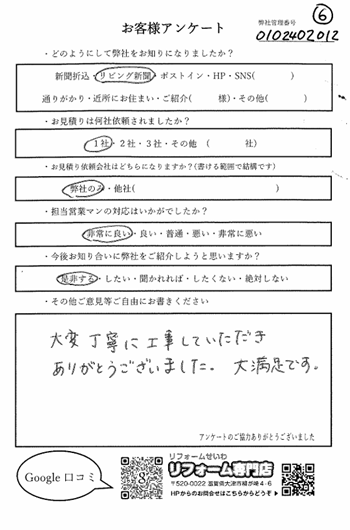 ⑥
お客様アンケート
弊社管理番号
0102402012
・どのようにして弊社をお知りになりましたか？
新聞折込・リビング新聞・ポストイン・HP・SNS( )
通りがかり・近所にお住まい・ご紹介( 様)・その他( )
・お見積りは何社依頼されましたか？
1社・2社・3社・その他 ( 社)
・お見積り依頼会社はどちらになりますか？(書ける範囲で結構です)
弊社のみ・他社( )
・担当営業マンの対応はいかがでしたか？
非常に良い・良い・普通・悪い・非常に悪い
・今後お知り合いに弊社をご紹介しようと思いますか？
是非する・したい・聞かれれば・したくない・絶対しない
・その他ご意見等ご自由にお書きください
大変丁寧に工事していただき
ありがとうございました。大満足です。
アンケートのご協力ありがとうございました
Google 口コミ
リフォームせいわ
リフォーム専門店
〒520-0022 滋賀県大津市柳が崎4-6
HPからのお問合せはこちらからどうぞ